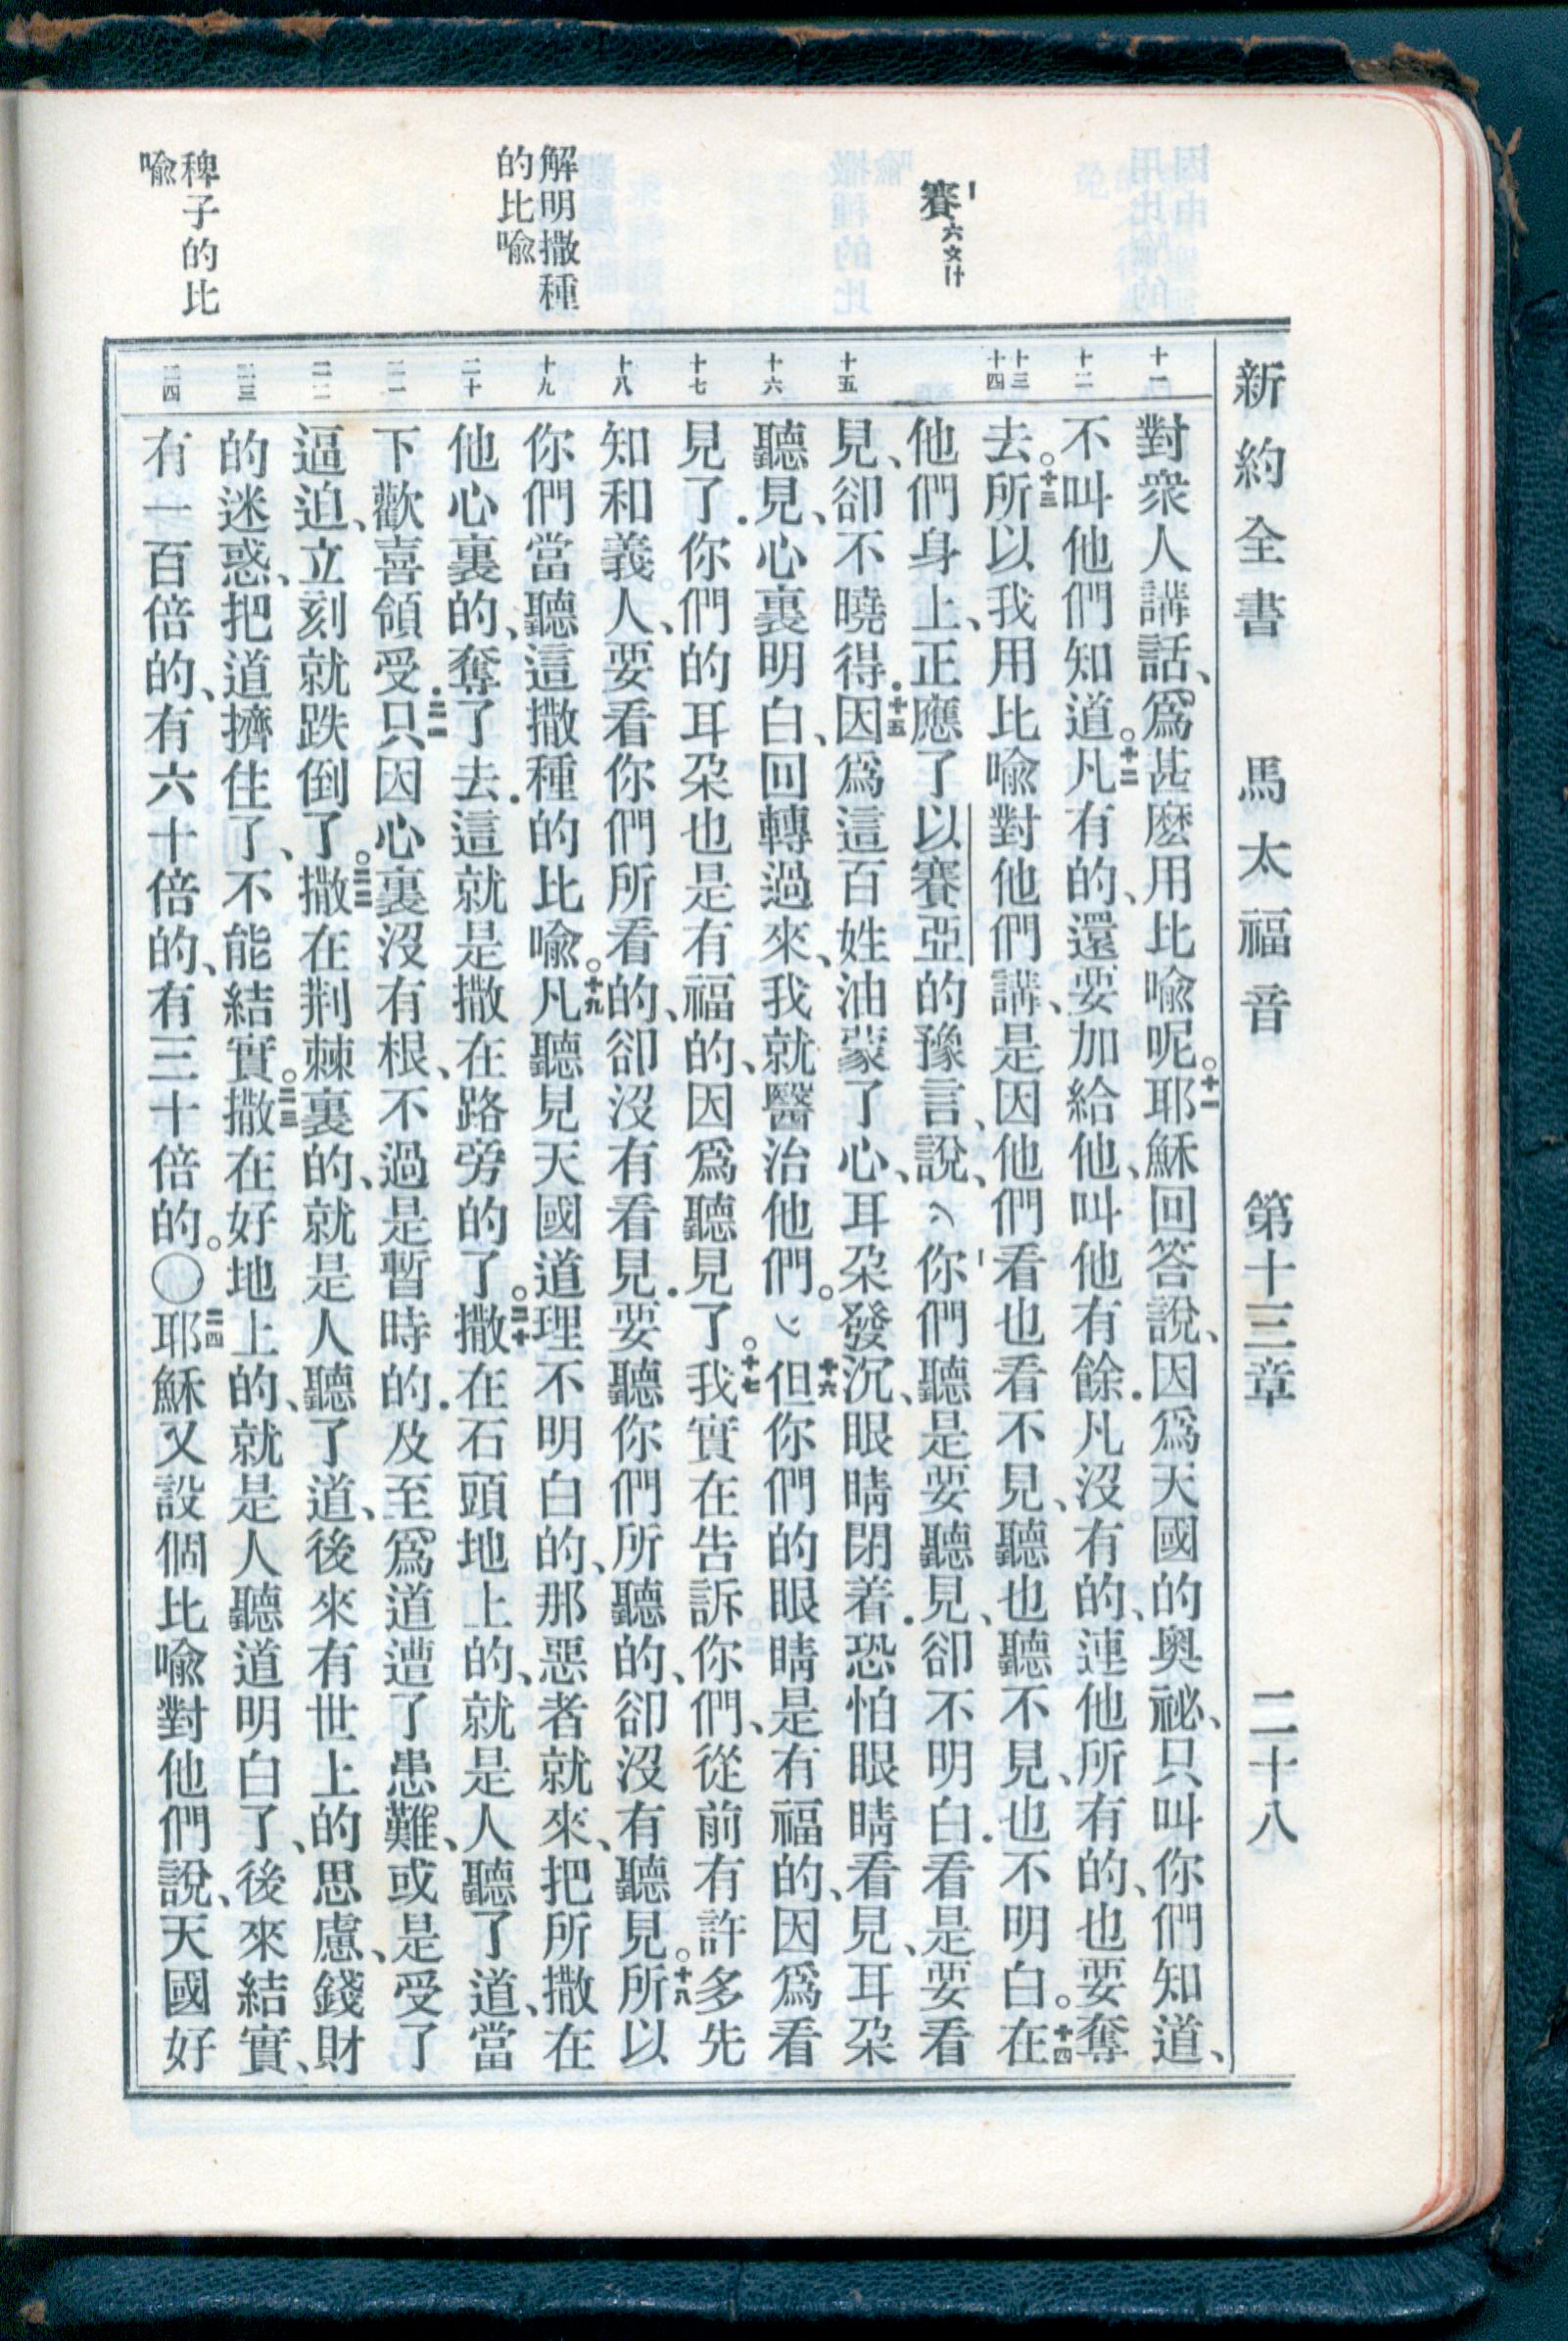 新約全書 馬太福音 第十三章 二十八
賽六九十
解明撒種
的比喻
稗子的比
喻
十一
十二
十三
十四
十五
十六
十七
十八
十九
二十
二一
二二
二三
二四
對衆人講話、爲甚麼用比喻呢。十一耶穌回答說、因爲天國的奧祕、只叫你們知道、
不叫他們知道。十二凡有的、還要加給他、叫他有餘．凡沒有的、連他所有的、也要奪
去。十三所以我用比喻對他們講、是因他們看也看不見、聽也聽不見、也不明白。十四在
他們身上、正應了以賽亞的豫言、說、『你們聽是要聽見、卻不明白．看是要看
見、卻不曉得．十五因爲這百姓油蒙了心、耳朶發沉、眼睛閉着．恐怕眼睛看見、耳朶
聽見、心裏明白、回轉過來、我就醫治他們。』十六但你們的眼睛是有福的、因爲看
見了．你們的耳朶也是有福的、因爲聽見了。十七我實在告訴你們、從前有許多先
知和義人、要看你們所看的、卻沒有看見．要聽你們所聽的、卻沒有聽見。十八所以
你們當聽這撒種的比喻。十九凡聽見天國道理不明白的、那惡者就來、把所撒在
他心裏的、奪了去．這就是撒在路旁的了。二十撒在石頭地上的、就是人聽了道、當
下歡喜領受．二一只因心裏沒有根、不過是暫時的．及至爲道遭了患難、或是受了
逼迫、立刻就跌倒了。二二撒在荆棘裏的、就是人聽了道、後來有世上的思慮、錢財
的迷惑、把道擠住了、不能結實。二三撒在好地上的、就是人聽道明白了、後來結實、
有一百倍的、有六十倍的、有三十倍的。○二四耶穌又設個比喻對他們說、天國好